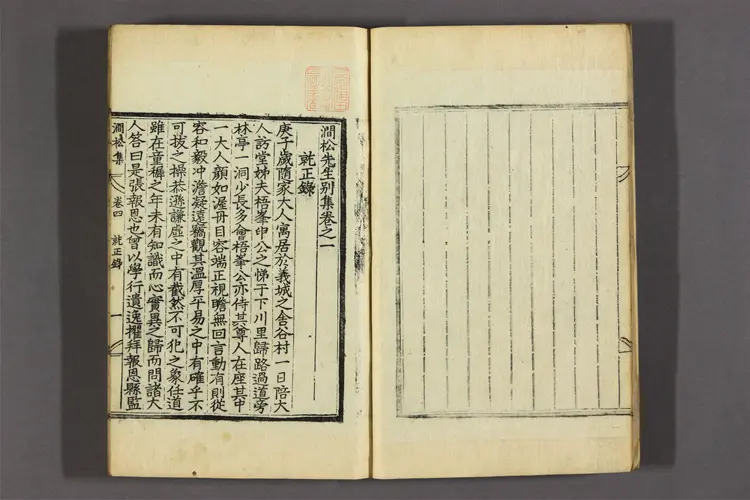 澗松先生别集卷之一
就正錄
庚子歲随家大人寓居於義城之舍谷村一日陪大
人訪堂姊夫梧峯申公之悌于下川里歸路過道旁
林亭一洞少長多會梧峯公亦侍其尊人在座其中
一大人顔如渥丹目容端正視瞻無回言動有則從
容和毅冲澹凝遠竊觀其溫厚平易之中有確乎不
可拔之操恭遜謙虛之中有截然不可犯之象任道
雖在童穉之年未有知識而心實異之歸而問諸大
人答曰是張報恩也曾以學行遺逸擢拜報恩縣監
澗松集 卷四 就正錄 一